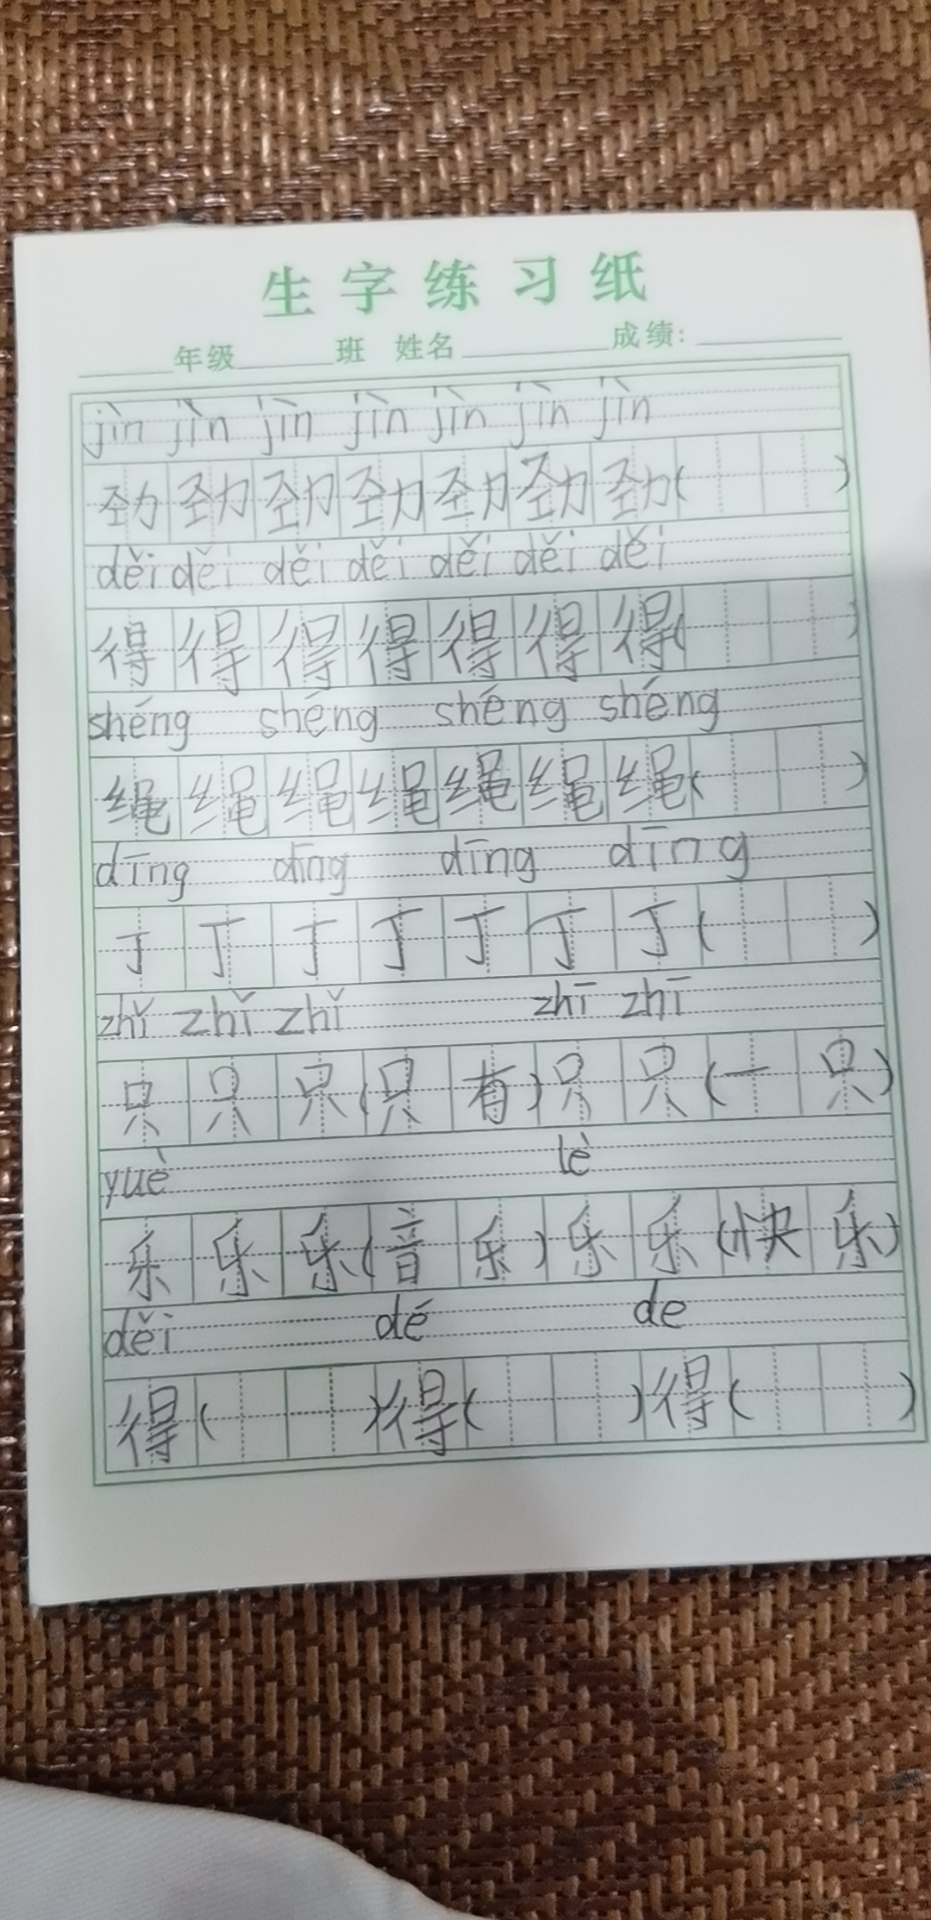 生字练习纸
年级 班 姓名 成绩:
jìn jìn jìn jìn jìn jìn jìn
劲 劲 劲 劲 劲 劲 劲( )
děi děi děi děi děi děi děi
得 得 得 得 得 得 得( )
shéng shéng shéng shéng
绳 绳 绳 绳 绳 绳 绳( )
dīng dīng dīng dīng
丁 丁 丁 丁 丁 丁 丁( )
zhǐ zhǐ zhǐ zhī zhī
只 只 只(只有)只 只(一只)
yuè lè
乐 乐 乐(音乐)乐 乐(快乐)
děi dé de
得( )得( )得( )